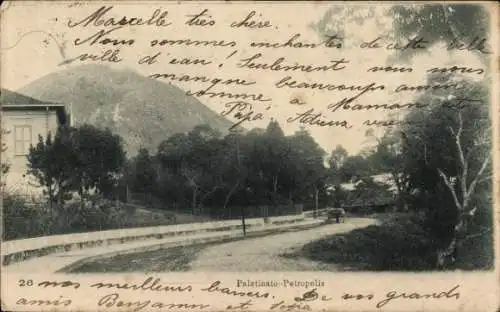 Marcelle très chère.
Nous sommes enchantés de cette belle
ville d'eau! Seulement vous nous
manque beaucoup amies, comme
Papa à Maman
Adieu, venez
26
Palatinato-Petropolis
nos meilleurs baisers De vos grands
amis Benjamin et Sofia